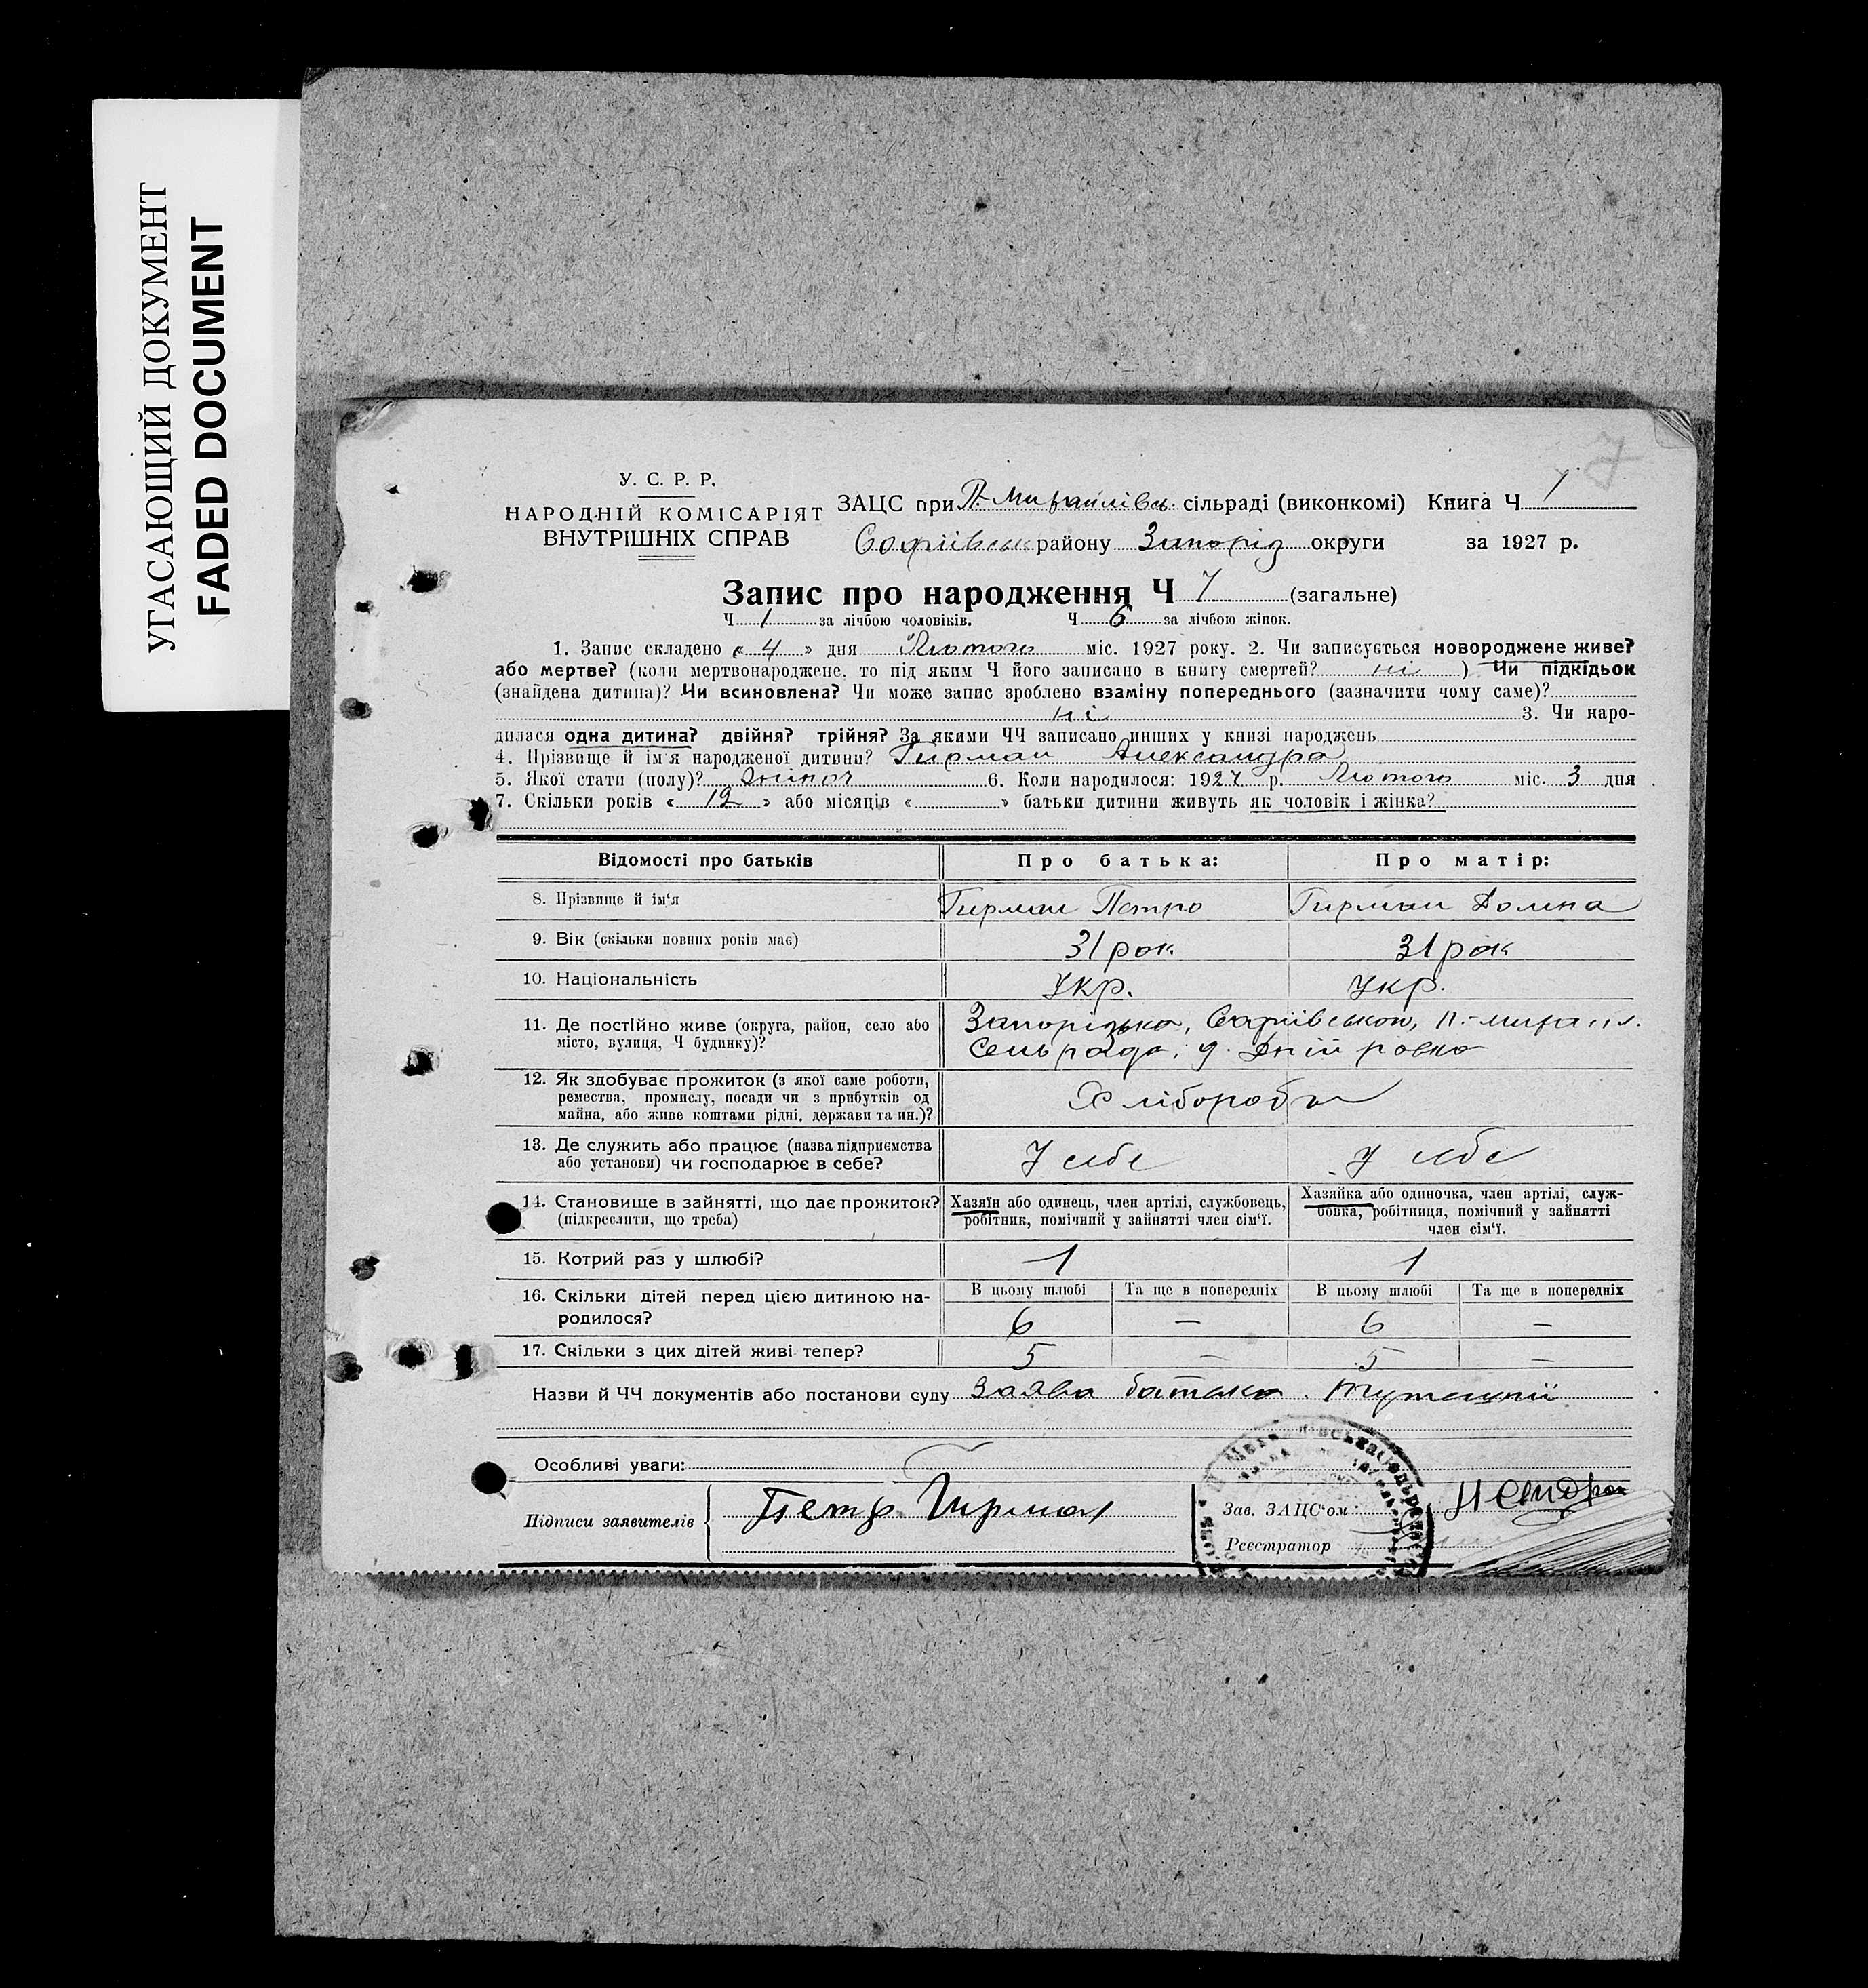 УГАСАЮЩИЙ ДОКУМЕНТ
FADED DOCUMENT
7
У. С. Р. Р.
НАРОДНІЙ КОМІСАРІЯТ
ВНУТРІШНІХ СПРАВ
ЗАЦС при П. Михайлівсь. сільраді (виконкомі) Книга Ч 1
Софіївськ району Запоріз округи за 1927 р.
Запис про народження Ч 7 (загальне)
Ч 1 за лічбою чоловіків. Ч 6 за лічбою жінок.
1. Запис складено « 4 » дня Лютого міс. 1927 року. 2. Чи записується новороджене живе?
або мертве? (коли мертвонароджене, то під яким Ч його записано в книгу смертей? ні ) Чи підкідьок
(знайдена дитина)? Чи всиновлена? Чи може запис зроблено взаміну попереднього (зазначити чому саме)?
ні 3. Чи наро-
дилася одна дитина? двійня? трійня? За якими ЧЧ записано инших у книзі народжень
4. Прізвище й ім'я народженої дитини? Гирман Александра
5. Якої стати (полу)? Жіноч 6. Коли народилося: 1927 р. Лютого міс. 3 дня
7. Скільки років « 12 » або місяців « » батьки дитини живуть як чоловік і жінка?
Відомості про батьків Про батька: Про матір:
8. Прізвище й ім‘я Гирман Петро Гирман Домна
9. Вік (скільки повних років має) 31 рок 31 рок
10. Національність Укр. Укр.
11. Де постійно живе (округа, район, село або
місто, вулиця, Ч будинку)?
Запорізька, Софіївською,
Сельрада,
12. Як здобуває прожиток (з якої саме роботи,
ремества, промислу, посади чи з прибутків од
майна, або живе коштами рідні, держави та ин.)?
Хлібороби
13. Де служить або працює (назва підприємства
або установи) чи господарює в себе?
У себе У себе
14. Становище в зайнятті, що дає прожиток?
(підкреслити, що треба)
Хазяїн або одинець, член артілі, службовець,
робітник, помічний у зайнятті член сім‘ї.
Хазяйка або одиночка, член артілі, служ-
бовка, робітниця, помічний у зайнятті
член сім‘ї.
15. Котрий раз у шлюбі? 1 1
16. Скільки дітей перед цією дитиною на-
родилося?
В цьому шлюбі Та ще в попередніх В цьому шлюбі Та ще в попередніх
6 — 6 —
17. Скільки з цих дітей живі тепер? 5 — 5 —
Назви й ЧЧ документів або постанови суду Заява батька.
Особливі уваги:
Підписи заявителів Петр Гирман
Зав. ЗАЦС‘ом
Реєстратор